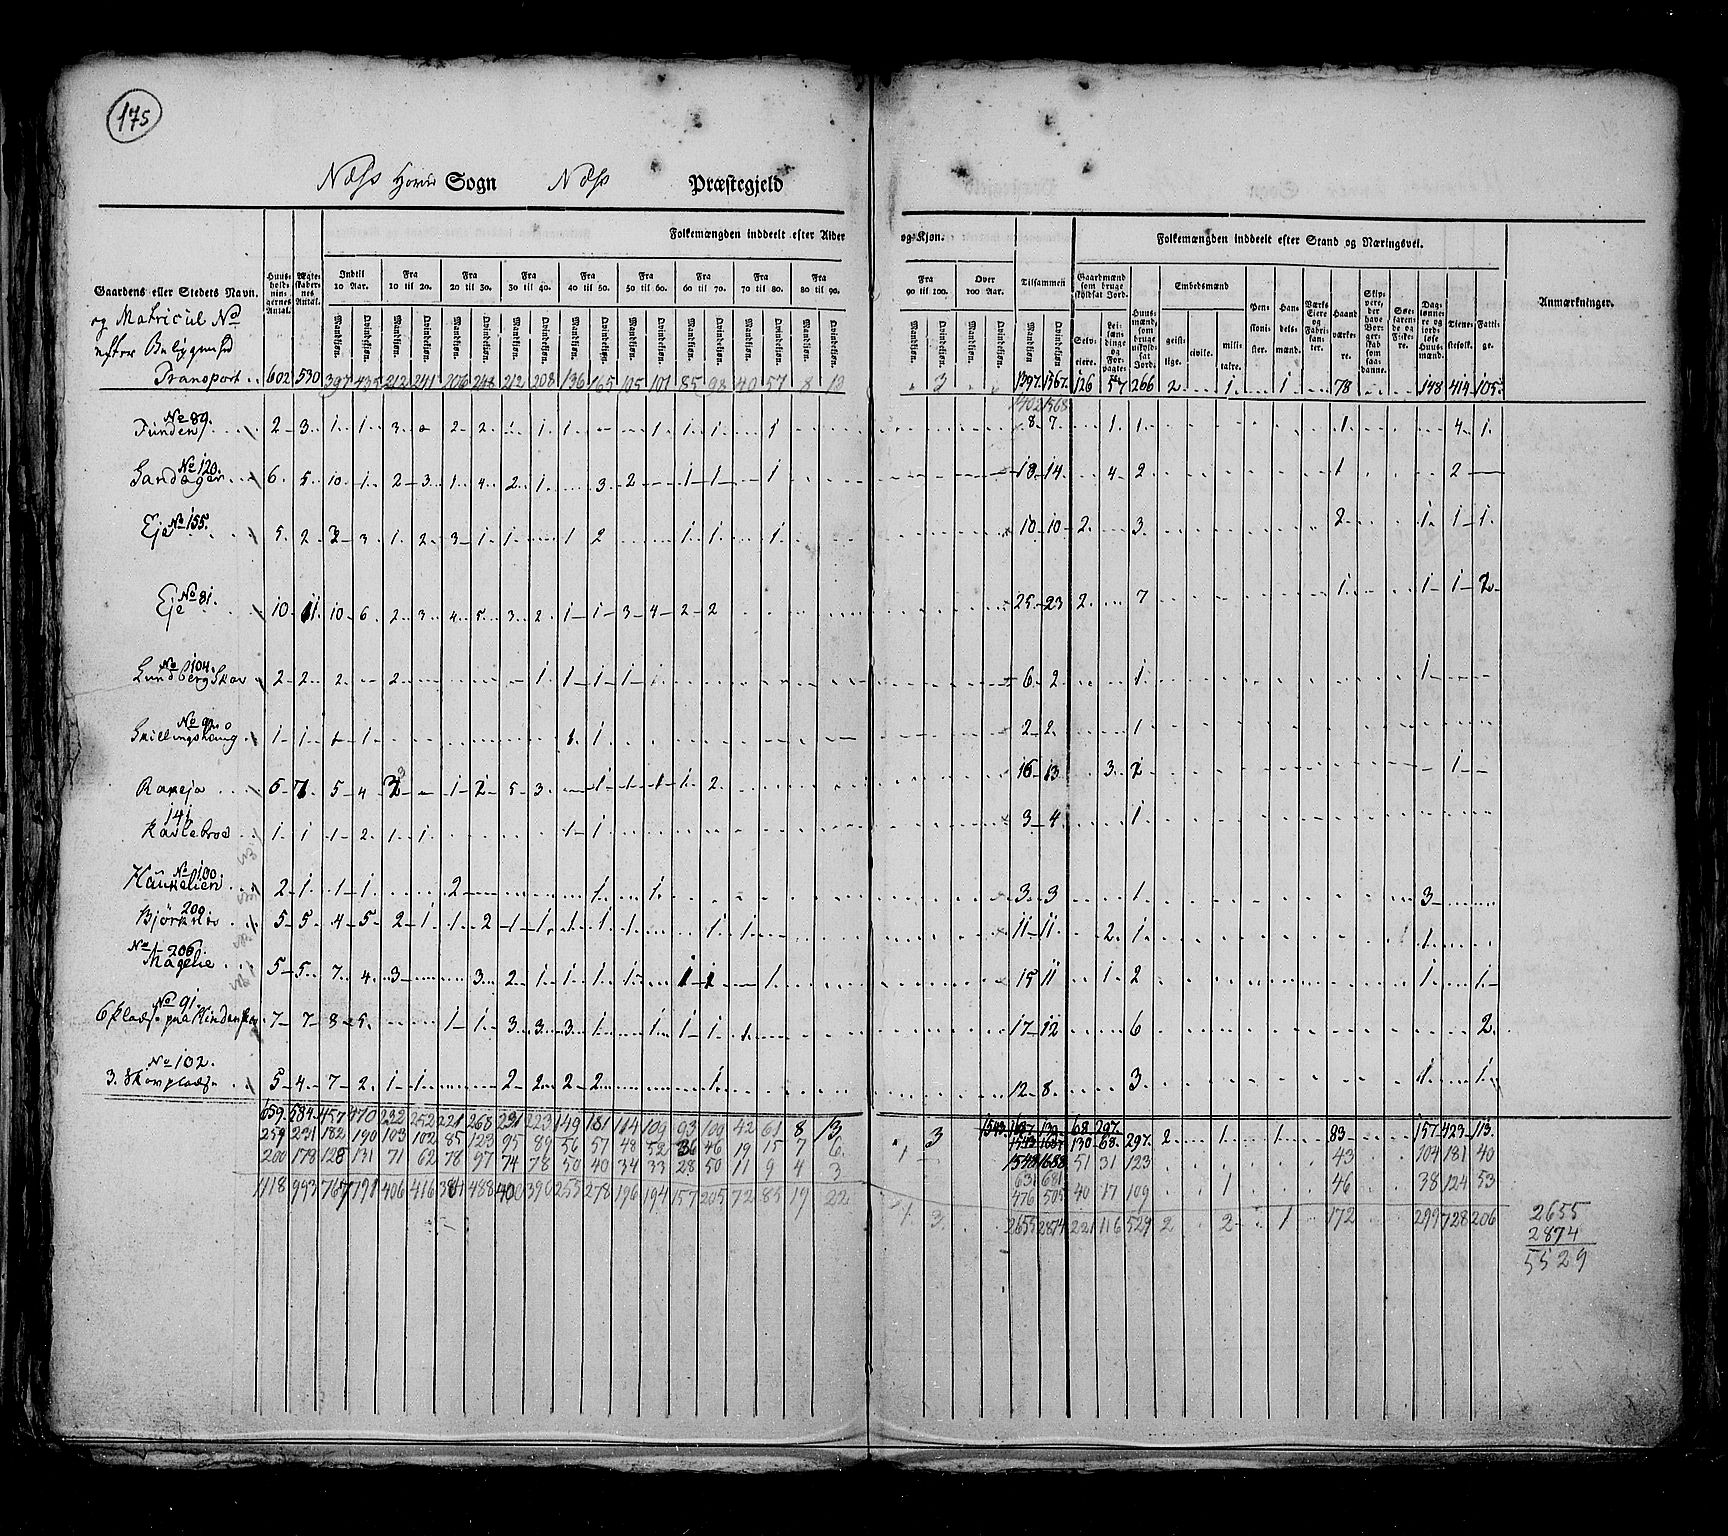 175
Næss Hoved Sogn Næss Præstegjeld
Folkemængden inddeelt efter Alder og Kjøn.
Folkemængden inddeelt efter Stand og Næringsvei.
Gaardens eller Stedets Navn.
og Matricul No
efter Beliggenhed
Huusholdningernes Antal.
Ægteskabernes Antal.
Indtil 10 Aar. Fra 10 til 20. Fra 20 til 30. Fra 30 til 40. Fra 40 til 50. Fra 50 til 60. Fra 60 til 70. Fra 70 til 80. Fra 80 til 90. Fra 90 til 100. Over 100 Aar. Tilsammen
Mandkjøn. Qvindekjøn.
Gaardmænd som bruge skyldsat Jord. Selveiere. Leilændinge og Forpagtere.
Huusmænd, som bruge uskyldsat Jord.
Embedsmænd geistlige. civile. militaire.
Pensionister. Handelsmænd. Værks Eiere og Fabrikanter. Haandværkere. Skippere, der have Borgerskab som saadanne. Søefarende og Fiskere. Daglønnere og jordløse Huusmænd. Tienestefolk. Fattige.
Anmærkninger.
Transport 602 530 397 435 212 241 206 248 212 208 136 165 105 101 85 98 40 57 8 10 3 1397 1567 126 57 266 2 1 1 78 148 414 105
1402 1568
No 89
Funden 2 3 1 1 3 2 2 1 1 1 1 1 1 1 8 7 1 1 1 4 1
No 120
Sandager 6 5 10 1 2 3 1 4 2 1 3 2 1 1 1 18 14 4 2 1 2
Eje No 155 5 2 2 3 1 2 3 1 1 1 2 1 1 1 10 10 2 3 2 1 1 1
No 81
Eje 10 11 10 6 2 3 4 5 3 2 1 1 3 4 2 2 25 23 2 7 1 1 1 2
No 104
Lundbergskov 2 2 2 2 1 1 1 1 6 2 1 1
No 92
Skillingshaug 1 1 1 1 1 1 2 2 1
Rameja 6 7 5 4 3 1 2 5 3 1 1 1 1 2 16 13 3 2 1
141
Kavlebroe 1 1 1 2 1 1 1 1 3 4 1
No 100
Haukelien 2 1 1 1 2 1 1 3 3 1 3
200
Bjørkelie 5 5 4 5 2 1 1 2 1 1 1 1 1 1 1 11 11 2 1 1
No 206
Magelie 5 5 7 4 3 3 2 1 1 1 1 1 1 1 15 11 1 2 1 1
No 91.
6 Pladse paa Vindenskov 7 7 8 5 1 1 3 3 3 1 1 1 1 1 17 12 6 2
No 102.
3. Skovpladse 5 4 7 2 1 1 2 2 2 2 1 12 8 3 1 1
659 584 457 470 232 252 221 268 231 223 149 181 114 109 93 109 42 61 8 13 3 130 68 297 2 1 1 83 157 423 113
259 231 182 190 103 102 85 123 95 89 56 57 48 52 36 46 19 15 7 6 1548 1688 51 31 123 43 104 181 40
200 178 128 131 71 62 78 97 74 78 50 40 34 33 28 50 11 9 4 3 631 681
476 505 40 17 109 1 46 38 124 53
1118 993 767 791 406 416 384 488 400 390 255 278 196 194 157 205 72 85 19 22 1 3 2655 2874 221 116 529 2 2 1 172 299 728 206
2655
2874
5529